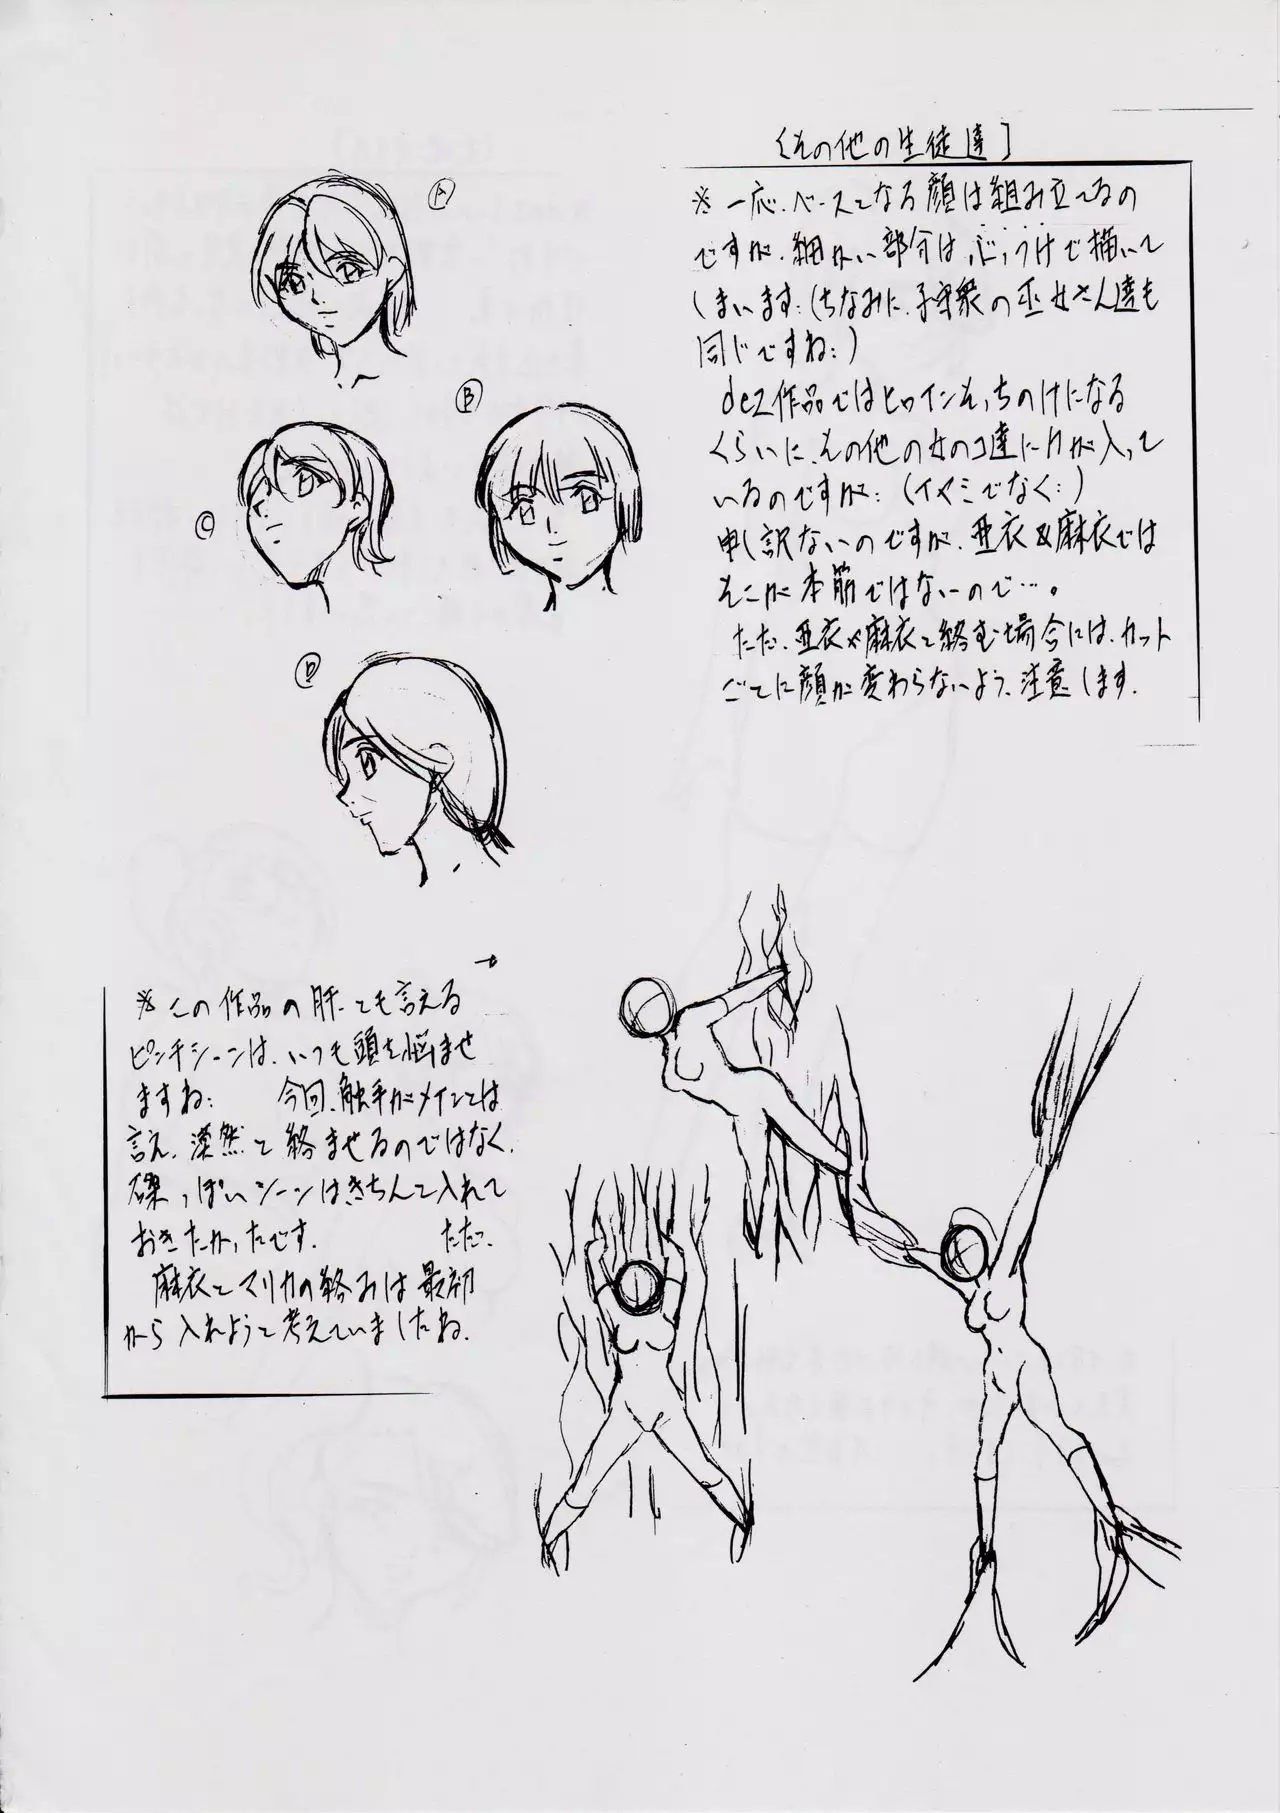 ［その他の生徒達］
※一応、ベースとなる顔は組み立てるの
ですが、細かい部分は、ぶっつけで描いて
しまいます。（ちなみに、子守衆の巫女さん達も
同じですね：）
dez作品ではヒロインそっちのけになる
くらいに、その他の女のコ達に力が入って
いるのですが：（イヤミでなく：）
申し訳ないのですが、亜衣&麻衣では
そこが本筋ではないので…。
ただ、亜衣や麻衣と絡む場合には、カット
ごとに顔が変わらないよう、注意します。
A
B
C
D
※この作品の肝とも言える
ピンチシーンは、いつも頭を悩ませ
ますね：　今回、触手がメインとは
言え、漠然と絡ませるのではなく、
磔っぽいシーンはきちんと入れて
おきたかったです。　ただ、
麻衣とマリカの絡みは最初
から入れようと考えていましたね。